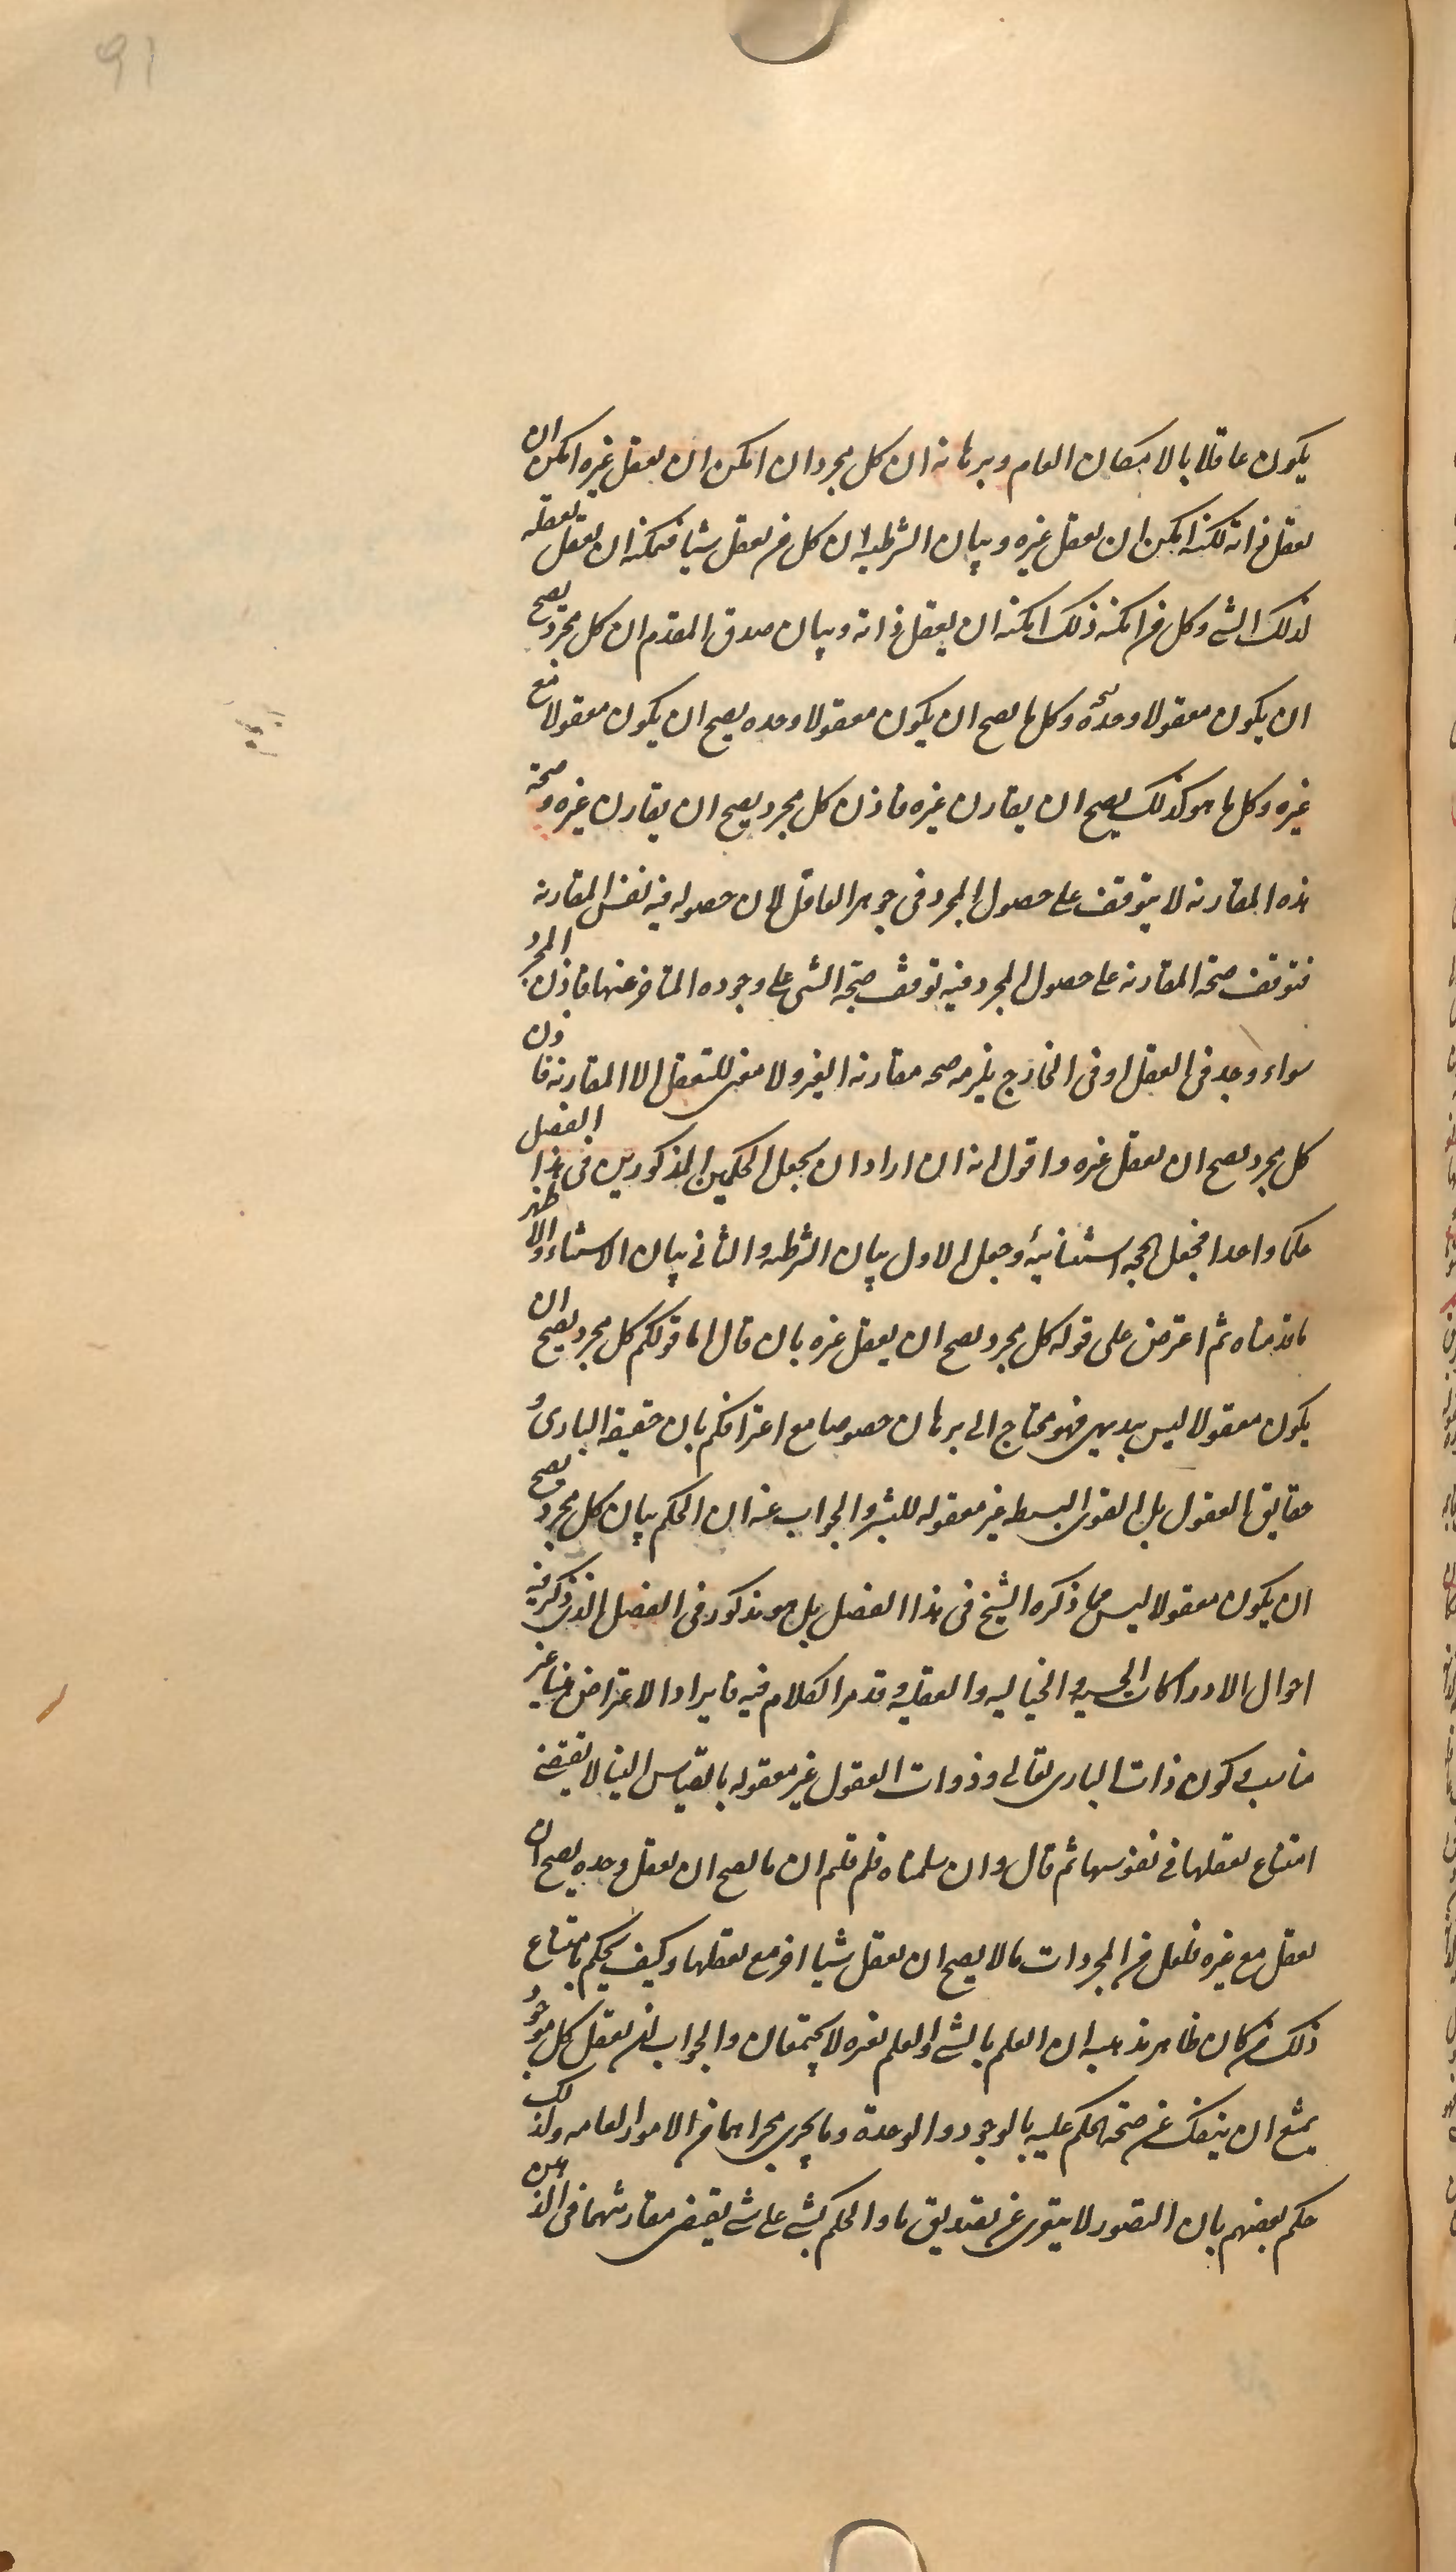 91
يكون عاقلا بالامكان العام وبرهانه ان كل مجرد ان امكن ان يعقل غيره امكن ان
يعقل ذاته لكنه امكن ان يعقل غيره وبيان الشرطية ان كل من يعقل شيئا فيمكنه ان يعقل تعقله
لذلك الشئ وكل من امكنه ذلك امكنه ان يعقل ذاته وبيان صدق المقدم ان كل مجرد يصح
ان يكون معقولا وحده وكل ما يصح ان يكون معقولا وحده يصح ان يكون معقولا مع
غيره وكل ما هو كذلك يصح ان يقارن غيره فاذن كل مجرد يصح ان يقارن غيره وصحة
هذه المقارنة لا يتوقف على حصول المجرد فى جوهر العاقل لان حصوله فيه نفس المقارنة
فتوقف صحة المقارنة على حصول المجرد فيه توقف صحة الشئ على وجوده المتاخر عنها فاذن المجرد
سواء وجد فى العقل او فى الخارج يلزمه صحه مقارنة الغير ولا معنى للتعقل الا المقارنة فاذن
كل مجرد يصح ان يعقل غيره واقول انه ان اراد ان يجعل الحكمين المذكورين فى هذا الفصل
حكما واحدا فجعل الحجة استثنائية وجعل الاول بيان الشرطية والثانى بيان الاستثناء والاظهر
ما قدمناه ثم اعترض على قوله كل مجرد يصح ان يعقل غيره بان قال اما قولكم كل مجرد يصح ان
يكون معقولا ليس ببديهى فهو محتاج الى برهان خصوصا مع اعترافكم بان حقيقة البارى و
حقايق العقول بل القوى البسيطه غير معقوله للبشر والجواب عنه ان الحكم بان كل مجرد يصح
ان يكون معقولا ليس مما ذكره الشيخ فى هذا الفصل بل هو مذكور فى الفصل الذى ذكر فيه
احوال الادراكات الحسيه والخياليه والعقليه وقد مر الكلام فيه فايراد الاعتراض هنا غير
مناسب وكون ذات البارى تعالى وذوات العقول غير معقوله بالقياس الينا لا يقتضى
امتناع تعقلها فى نفوسها ثم قال وان سلمناه فلم قلتم ان ما يصح ان يعقل وحده يصح ان
يعقل مع غيره فلعل من المجردات ما لا يصح ان يعقل شيئا اخر مع تعقلها وكيف يحكم بامتناع
ذلك من كان ظاهر مذهبه ان العلم بالشئ والعلم بغيره لا يجتمعان والجواب ان تعقل كل موجود
يمتنع ان ينفك عن صحة الحكم عليه بالوجود والوحدة وما يجرى مجراهما من الامور العامه ولذلك
حكم بعضهم بان التصور لا يتعرى عن تصديق ما والحكم بشئ على شئ يقتضى مقارنتهما فى الذهن